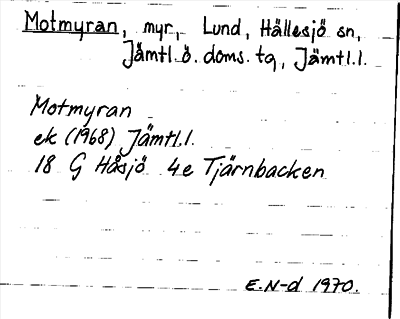 Motmyran, myr, Lund, Hällesjö sn,
Jämtl.ö. doms. tg, Jämtl.l.
Motmyran
ek (1968) Jämtl.l.
18 G Håsjö 4e Tjärnbacken
E.N-d 1970.